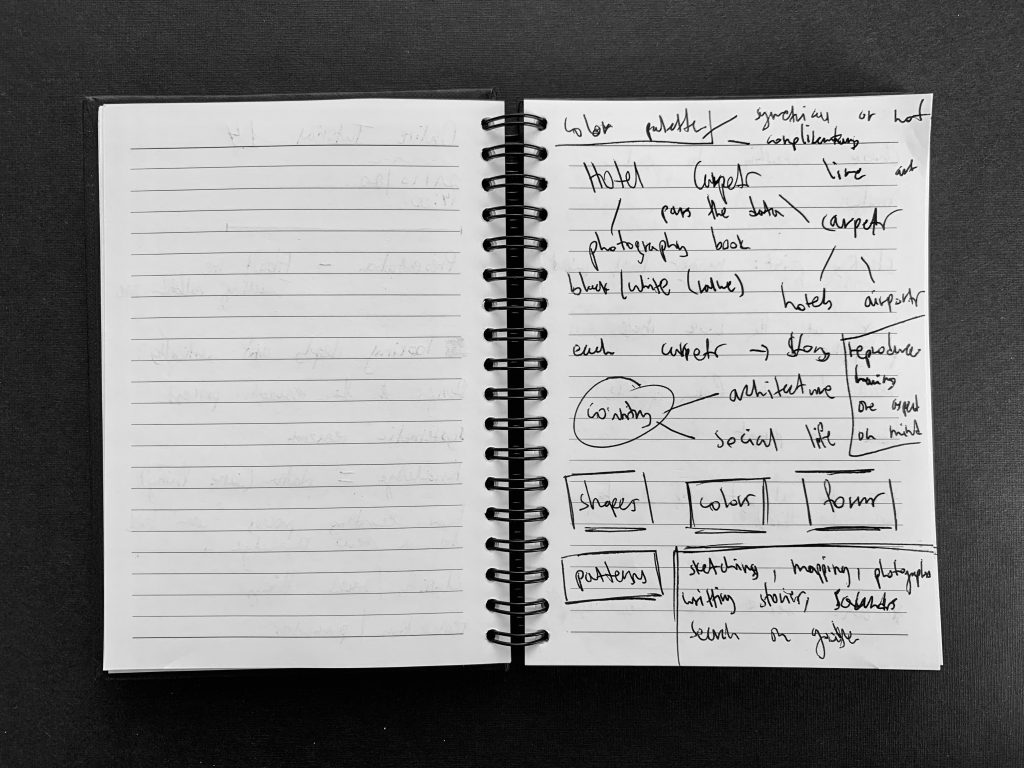 color palette
symetrical or not
complimentary
Hotel Carpets line art
pass the data
carpets
photography book
black/white (value)
hotels airports
each carpets → story
reproduce
country
architecture
one
on
social life
shapes color forms
patterns
sketching, mapping, photographs
writting stories,
search on google